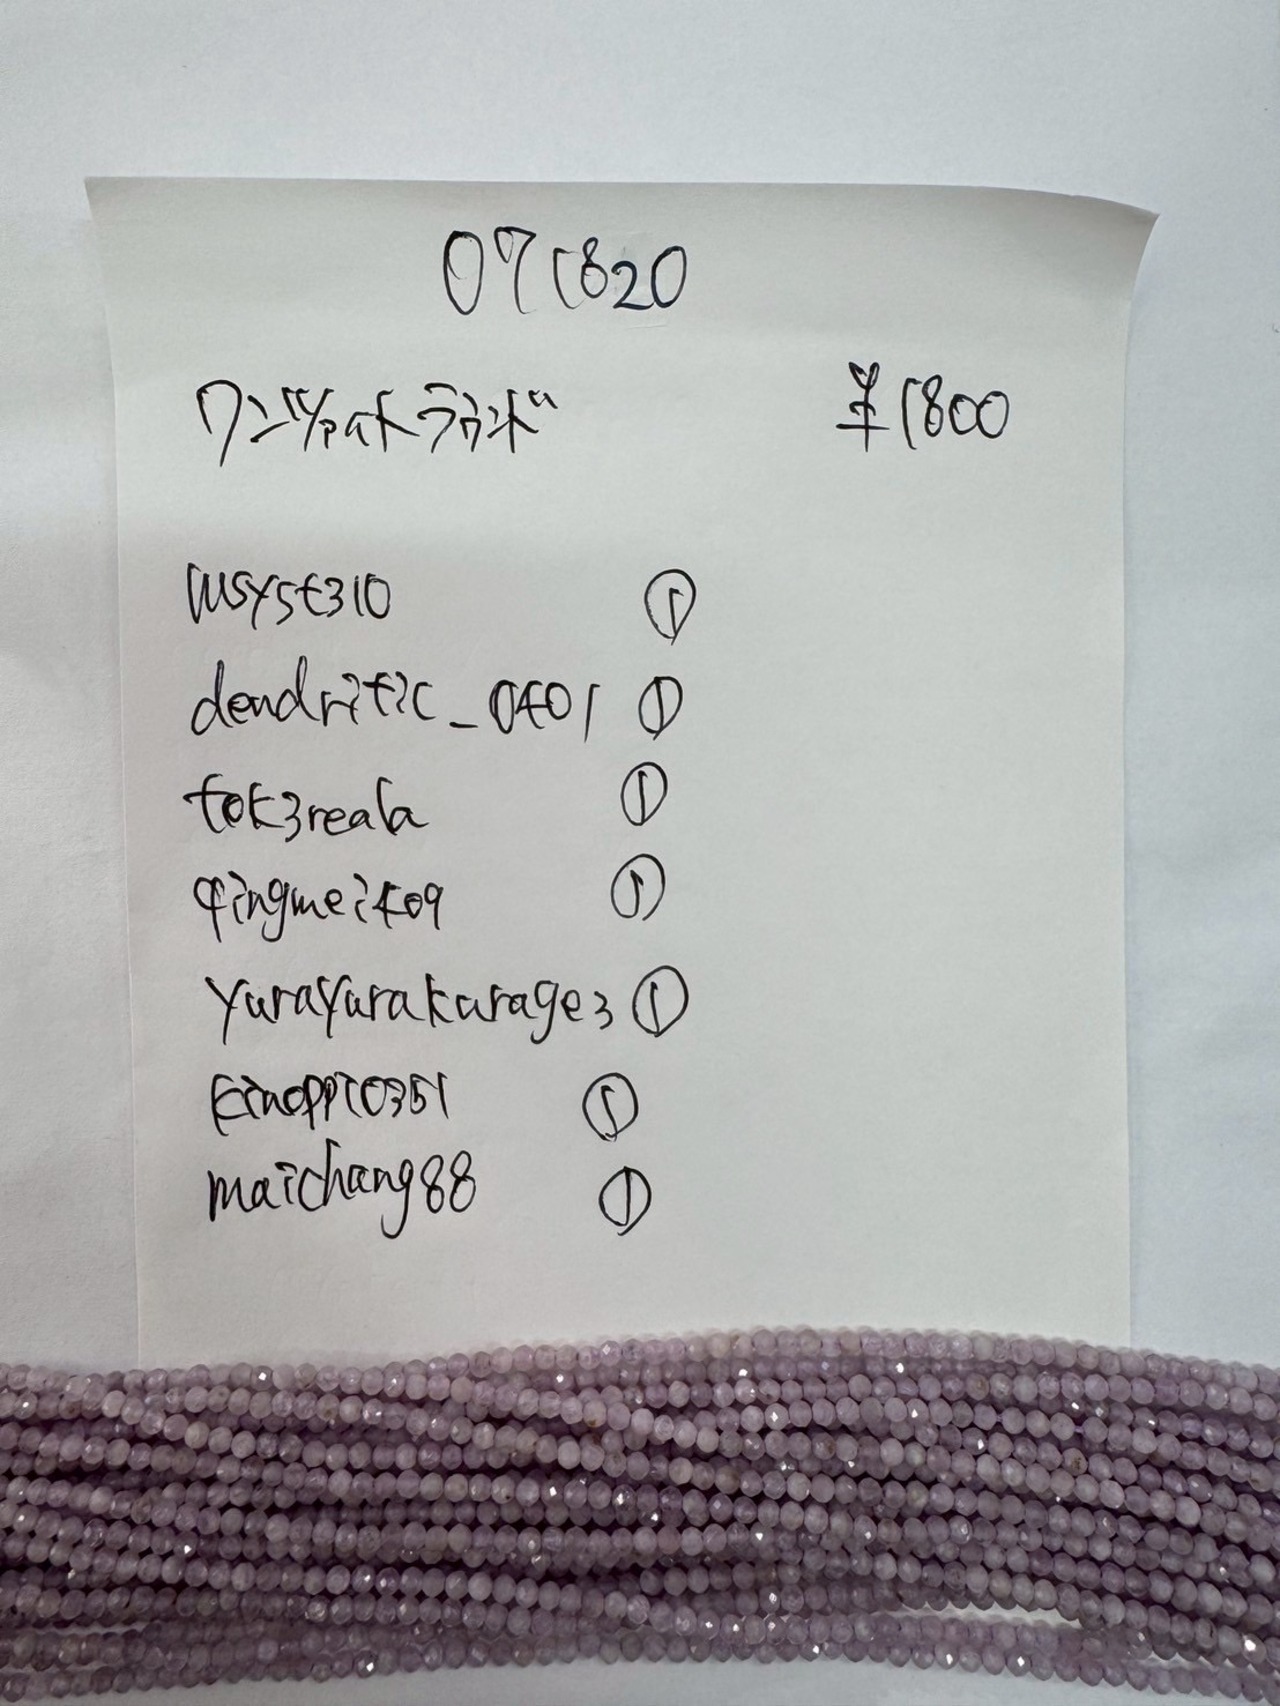 071820
クンツァイトラウンド ¥1800
msyst310 ①
dendritic_0401 ①
tok3reala ①
qingmei409 ①
yurayurakurage3 ①
kinoppi0351 ①
maichang88 ①